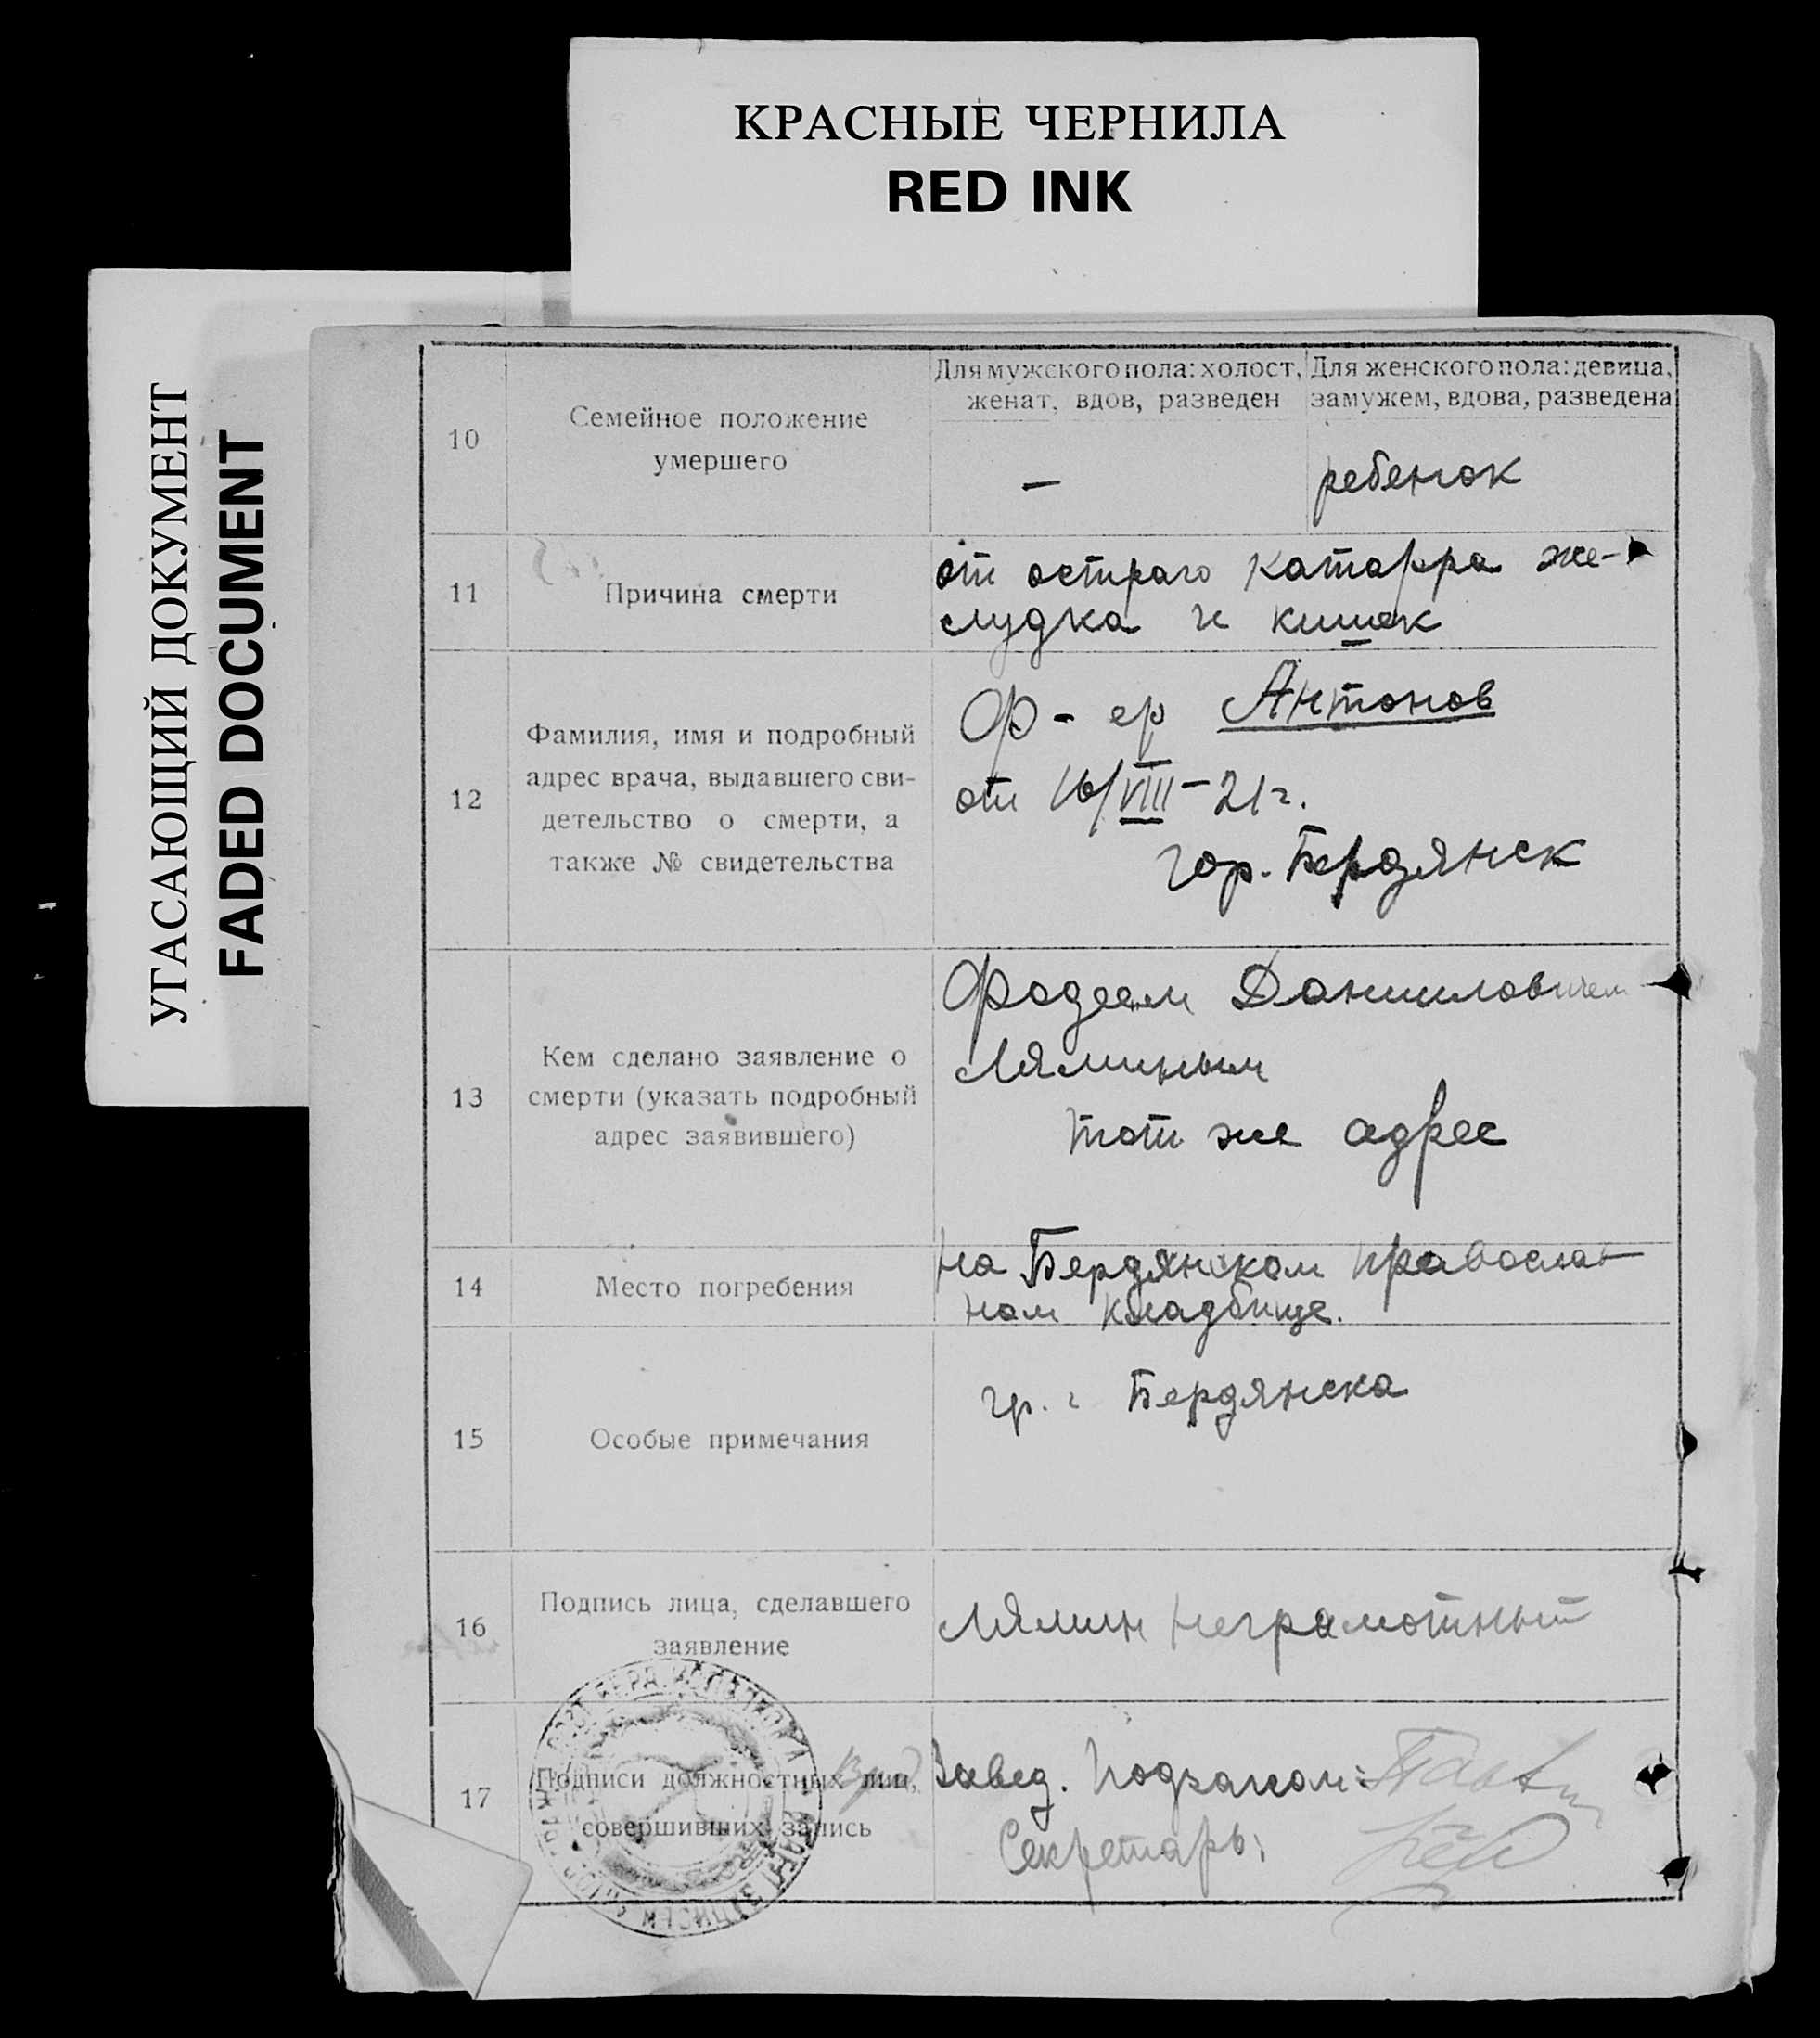 КРАСНЫЕ ЧЕРНИЛА
RED INK
УГАСАЮЩИЙ ДОКУМЕНТ
FADED DOCUMENT
10
Семейное положение
умершего
Для мужского пола: холост,
женат, вдов, разведен
—
Для женского пола: девица,
замужем, вдова, разведена
ребенок
11
Причина смерти
от остраго катарра же-
лудка и кишек
12
Фамилия, имя и подробный
адрес врача, выдавшего сви-
детельство о смерти, а
также № свидетельства
Ф-ер Антонов
от 16/VIII-21 г.
гор. Бердянск
13
Кем сделано заявление о
смерти (указать подробный
адрес заявившего)
Фадеем Данииловичем
Ляминым
тот же адрес
14
Место погребения
на Бердянском православ-
ном кладбище.
15
Особые примечания
гр. г Бердянска
16
Подпись лица, сделавшего
заявление
Лямин неграмотный
17
Подписи должностных лиц,
совершивших запись
Завед. Подзагсом:
Секретарь: